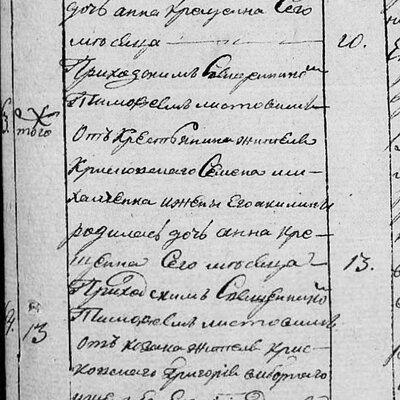 дочь анна крещена Сего
мѣсяца 20.
Приходскимъ Священикомъ
Тимофеемъ листовымъ
того
Отъ крестьянина жителя
Семена ми-
халченка ижены Его акилины
родилась дочь анна кре-
щенна Сего мѣсяца 13.
Приходскимъ Священикомъ
Тимофеемъ листовымъ
13
отъ козака жителя крис-
Григорія